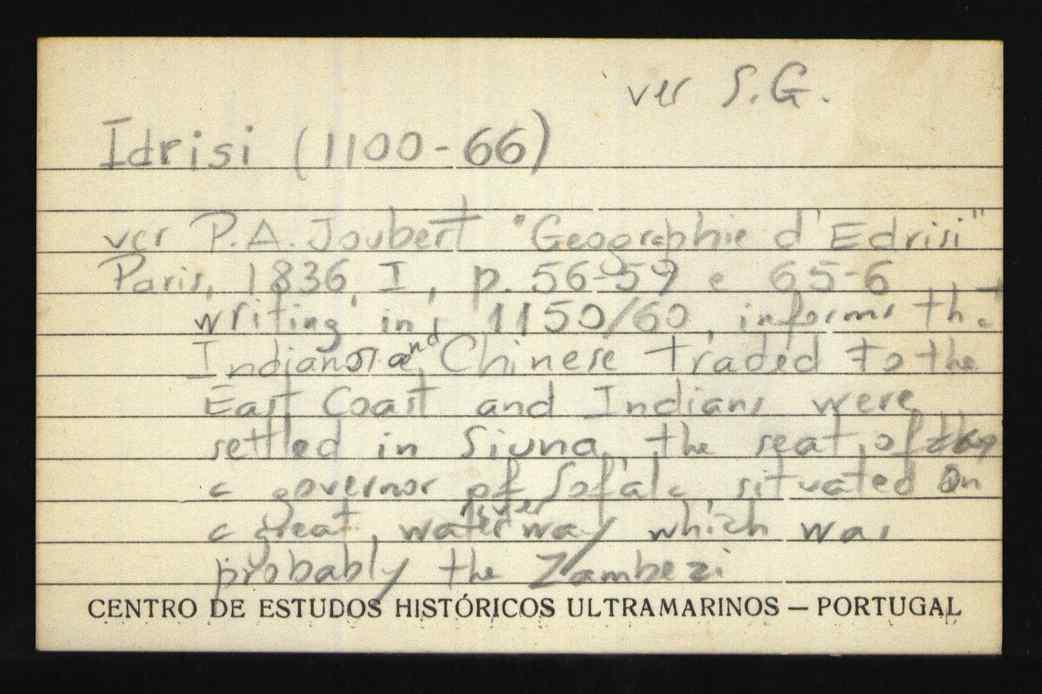 ver S.G.
Idrisi (1100-66)
ver P.A. Joubert "Geographie d'Edrisi"
Paris, 1836, I, p. 56-59 e 65-6
writing in 1150/60, informs that
Indians and Chinese traded to the
East Coast and Indians were
settled in Siuna, the seat of
a governor of Sofala, situated on
a great river waterway which was
probably the Zambezi
CENTRO DE ESTUDOS HISTÓRICOS ULTRAMARINOS — PORTUGAL